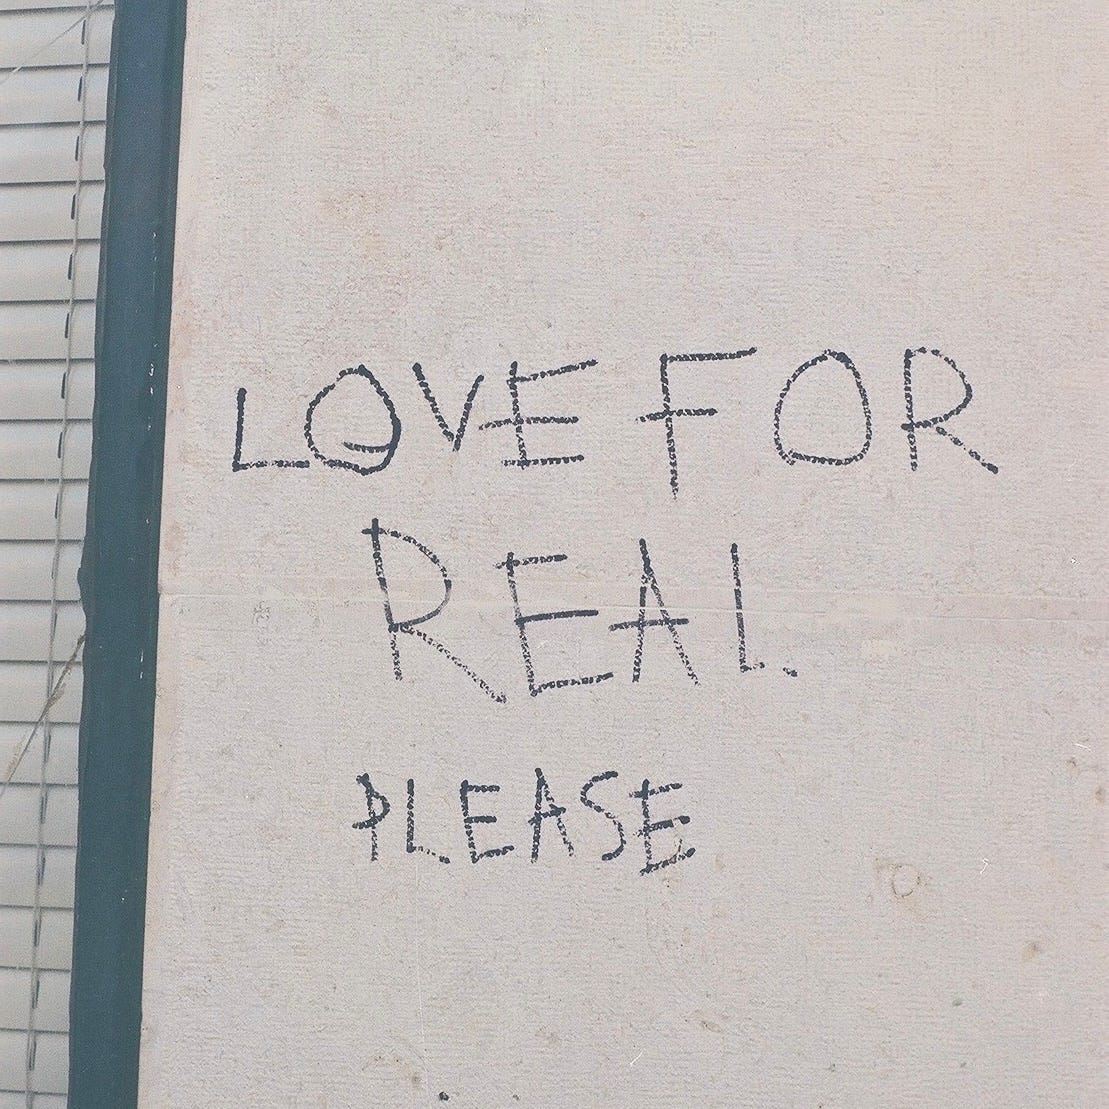 LOVE FOR
REAL.
PLEASE